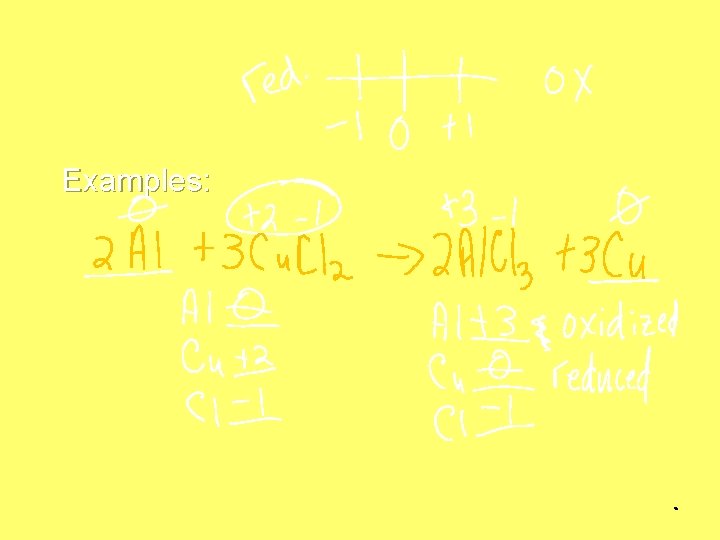 red. ox
-1 0 +1
Examples:
0 +2 -1 +3 -1 0
2Al + 3CuCl2 → 2AlCl3 + 3Cu
Al 0 Al +3 oxidized
Cu +2 Cu 0 reduced
Cl -1 Cl -1